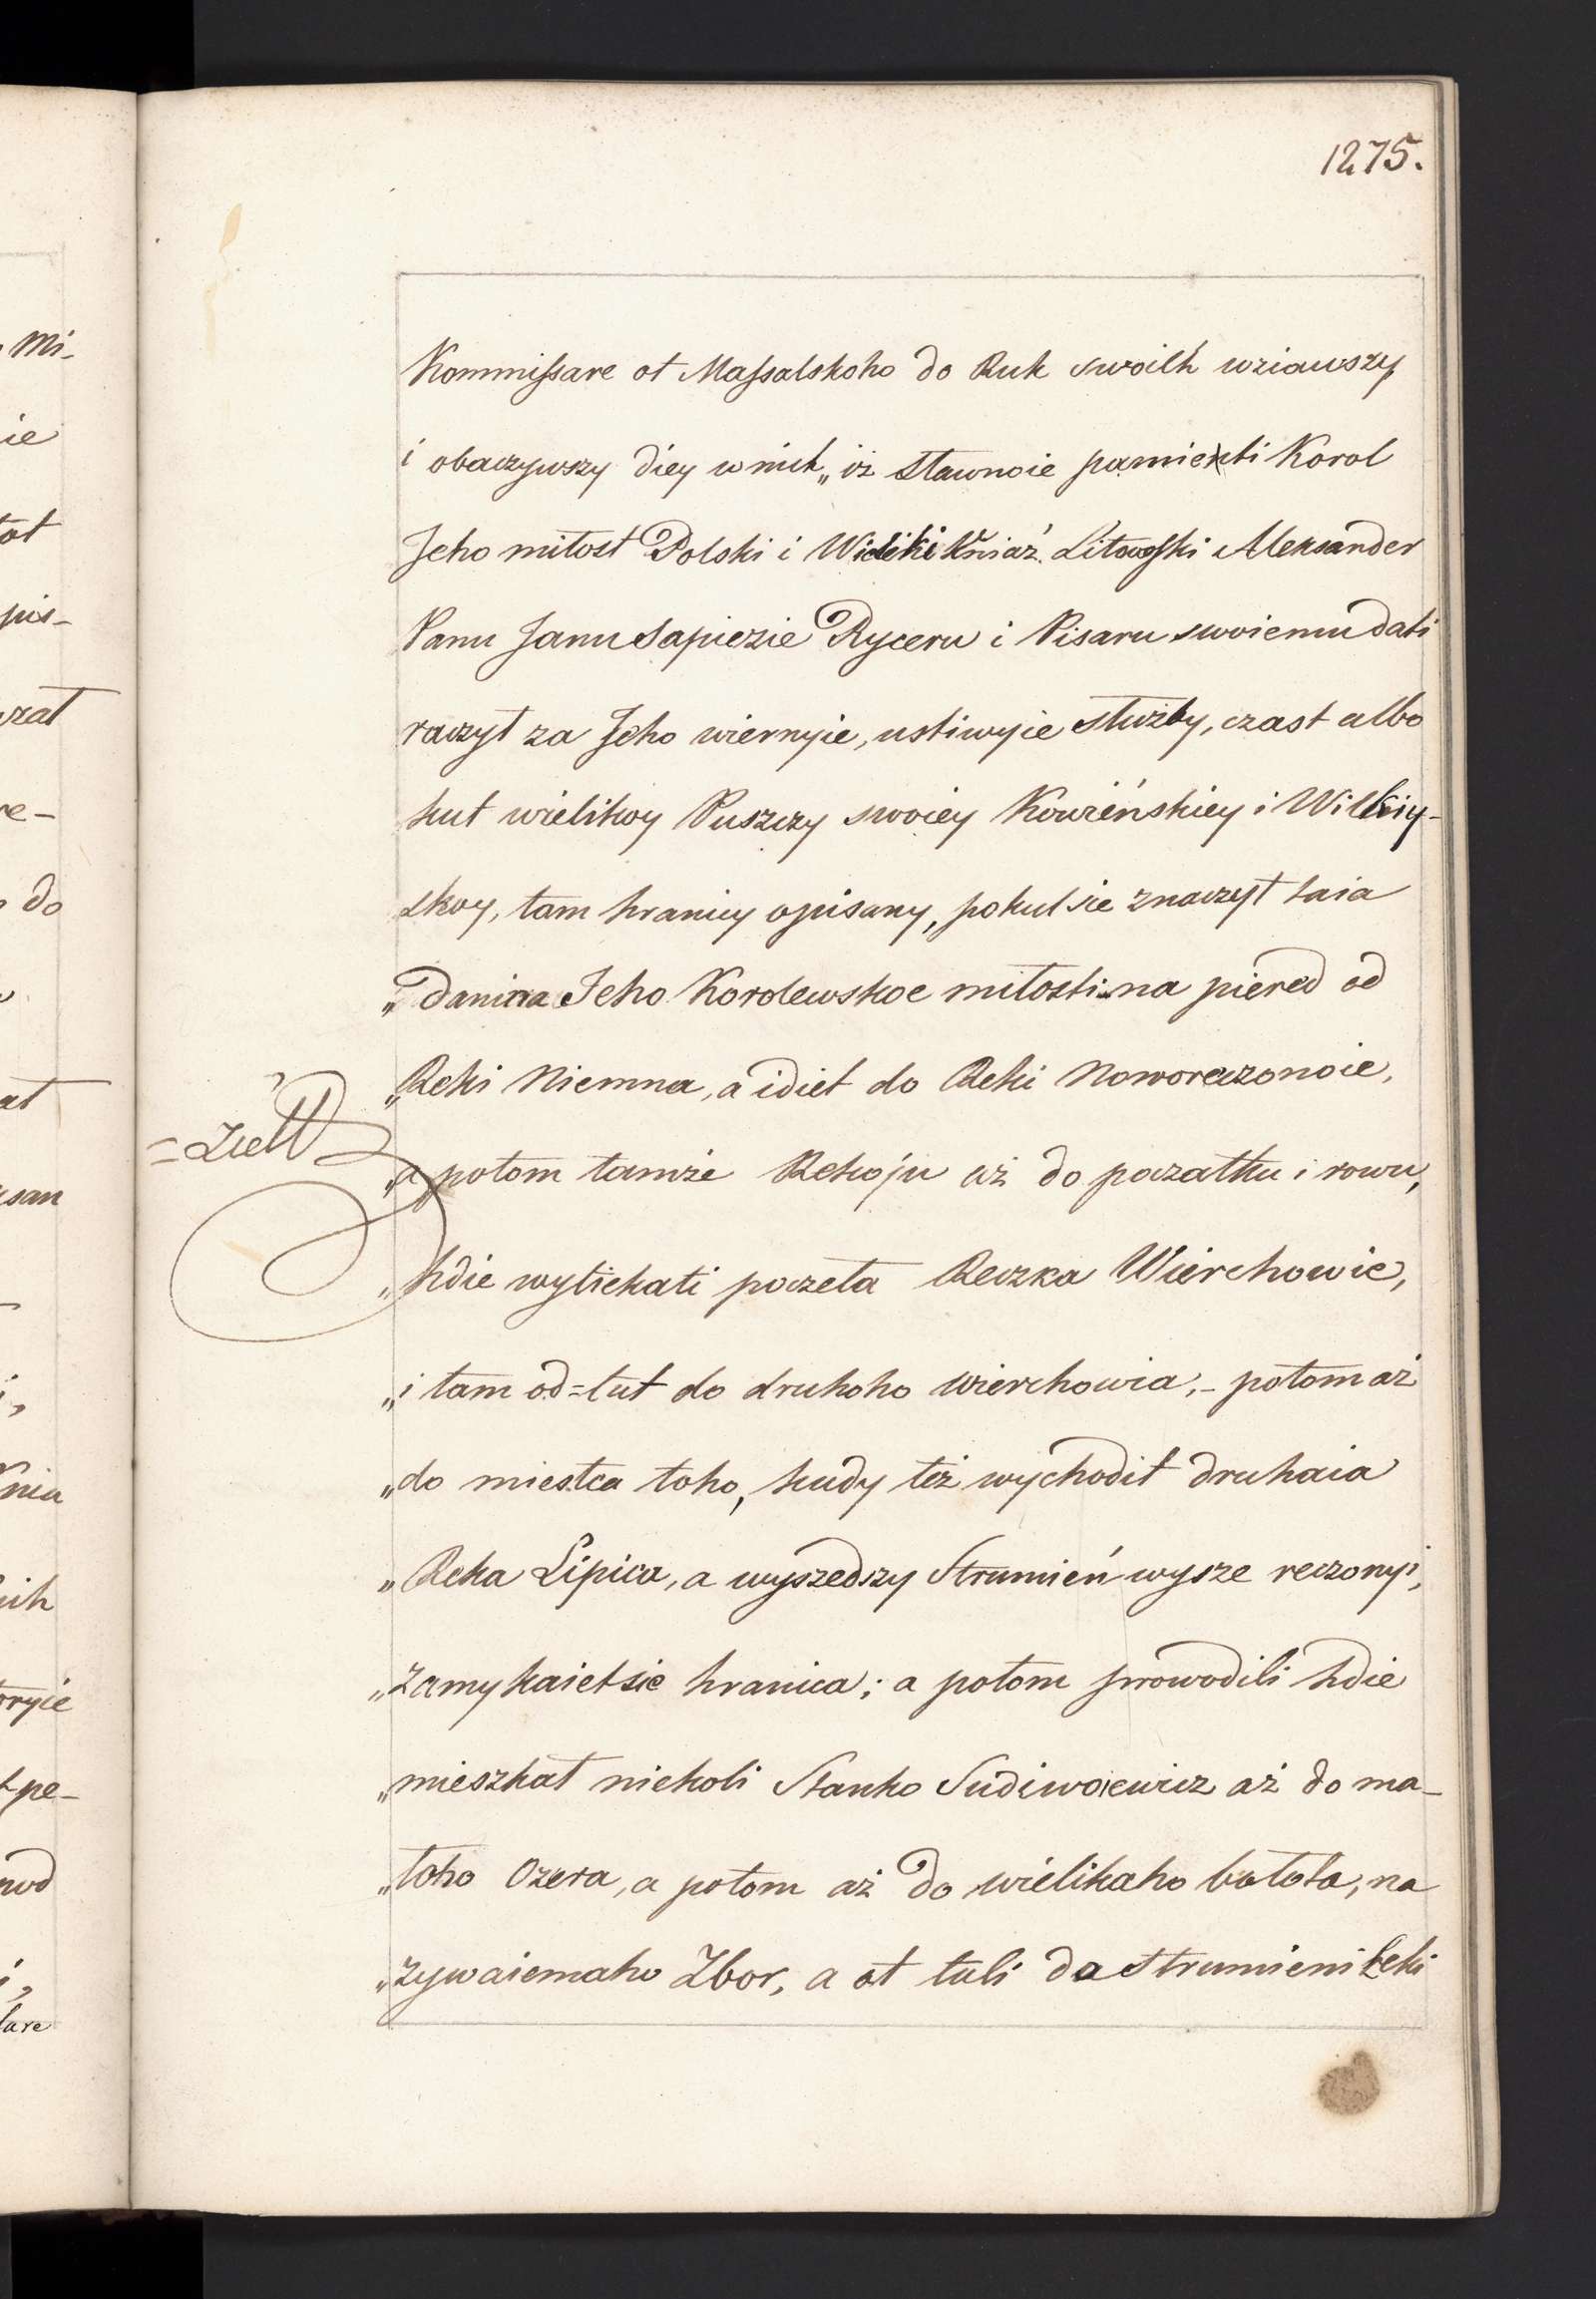 1275.
Kommissare ot Massalskoho do Ruk swoich wziawszy
i obaczywszy diey w nich „ iż sławnoie pamieti Korol
Jeho miłost Polski i Wieliki Kniaź Litowski Aleksander
Panu Janu Sapiezie Ryceru i Pisaru swoiemu dati
raczył za Jeho wiernyie, ustiwyie służby, czast albo
kut wielikoy Puszczy swoiey Kowieńskiey i Wilkiy-
skoy, tam hranicy opisany, pokul sie znaczyt taia
„Danina Jeho Korolewskoe miłosti na piered od
„Reki Niemna, a idiet do Reki Noworeczonoie,
„a potom tamże Rekoju aż do poczatku i rowu,
„hdie wytiekati poczeła Reczka Wierchowie,
„i tam od=tul do druhoho wierchowia,- potom aż
„do miestca toho, kudy też wychodit druhaia
„Reka Lipica, a wyszedszy Strumień wysze reczonyi,
„zamykaietsie hranica; a potom prowodili hdie
„mieszkał niekoli Stanko Sudiwoiewicz aż do ma-
„łoho Ozera, a potom aż do wielikaho bołota, na
„zywaiemaho Zbor, a ot tuli do Strumieni Reki
Mi-
ie
pis-
do
san
nia
ich
pe-